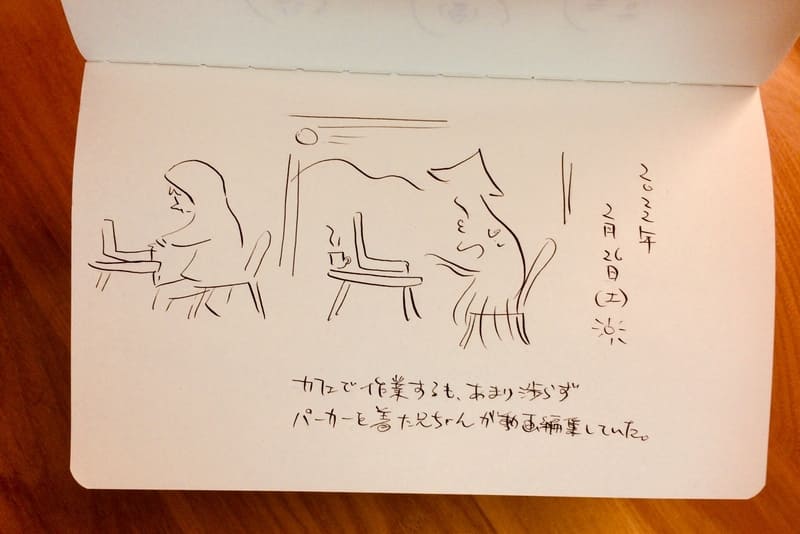 2022年
2月26日(土)
カフェで作業するも、あまり渉らず
パーカーを着た兄ちゃんが動画編集していた。